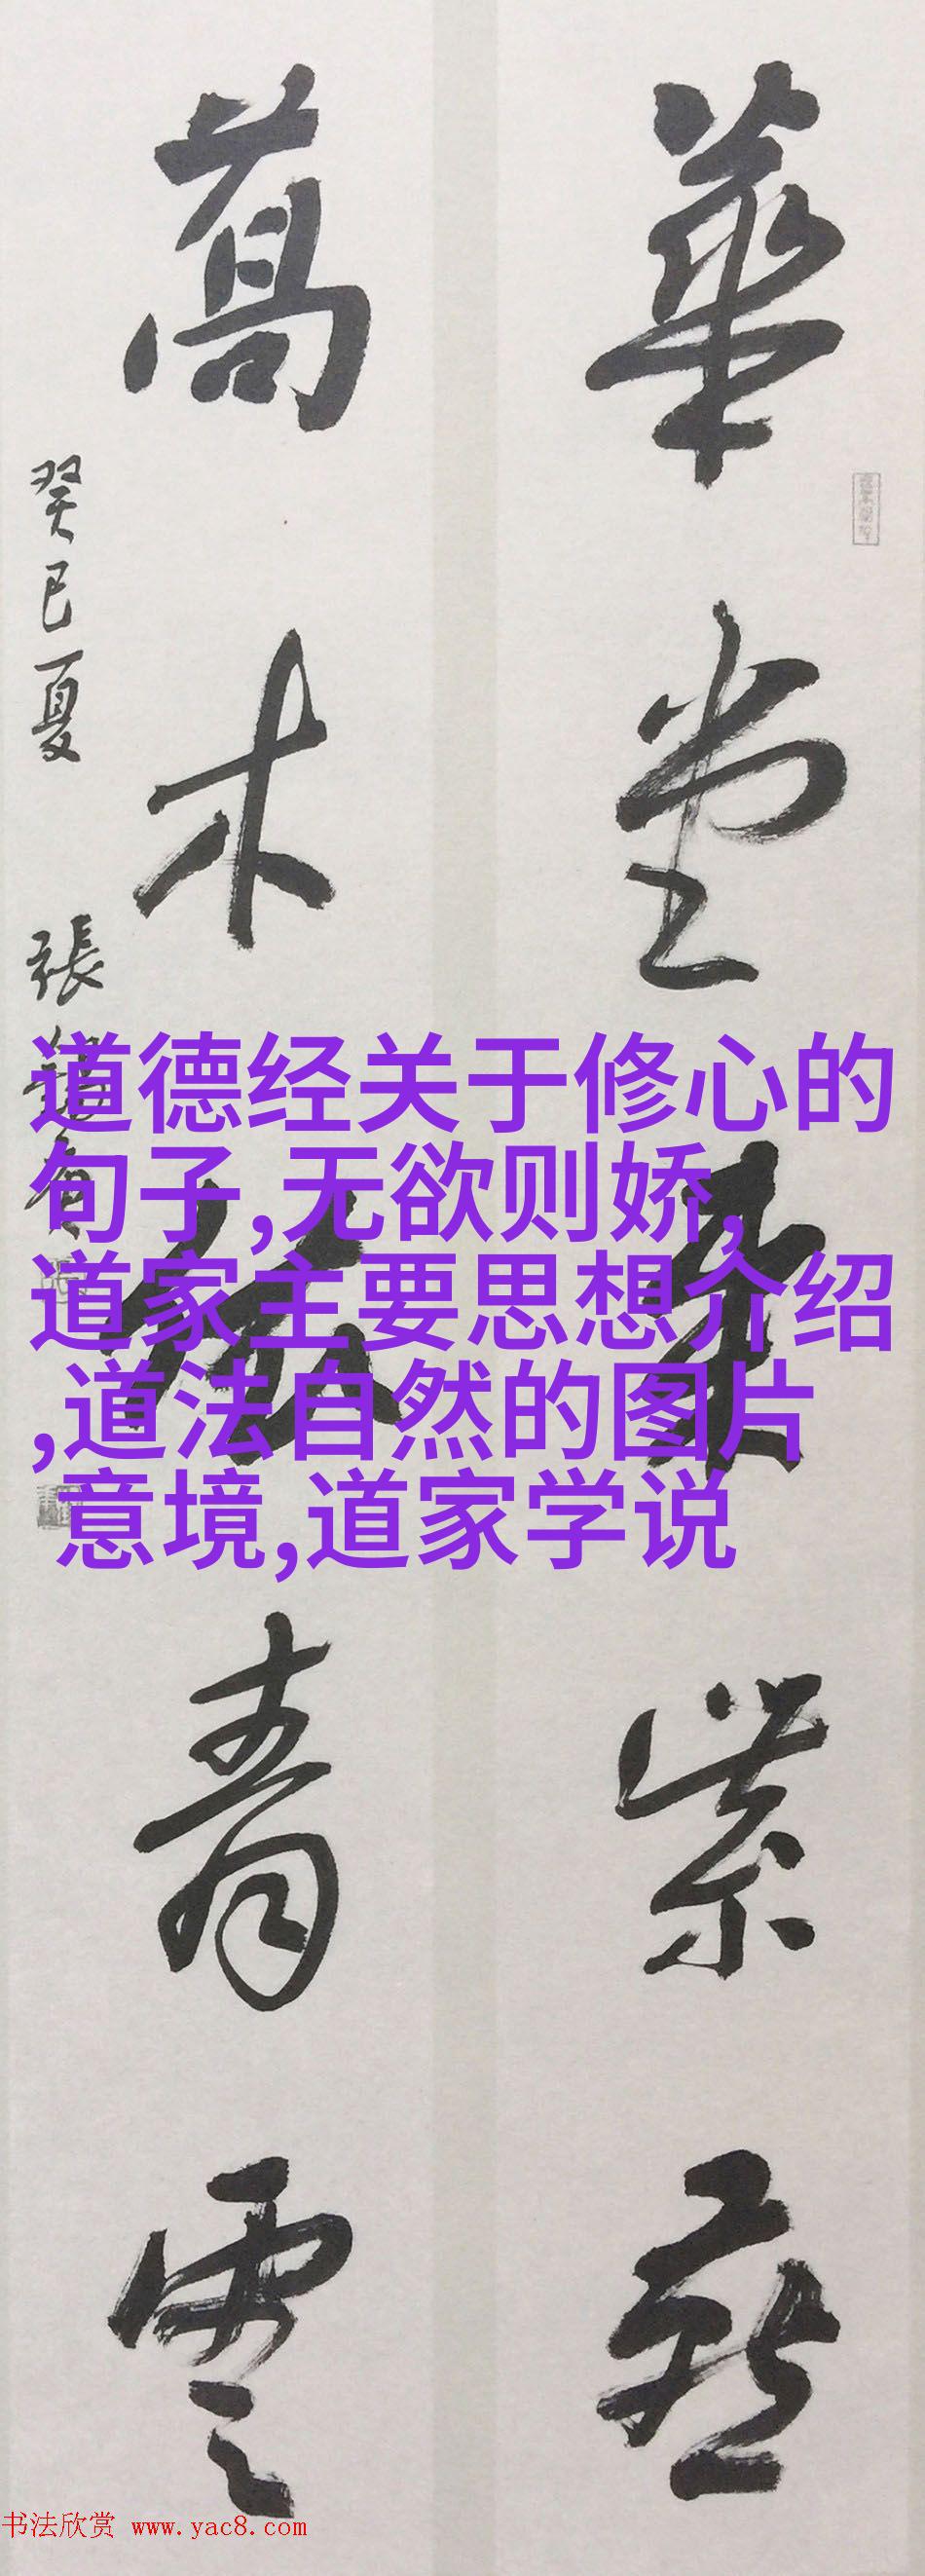 華堂紫
萬木青雲
癸巳夏 張
道德经关于修心的
句子,无欲则娇,
道家主要思想介绍
,道法自然的图片
意境,道家学说
书法欣赏 www.yac8.com